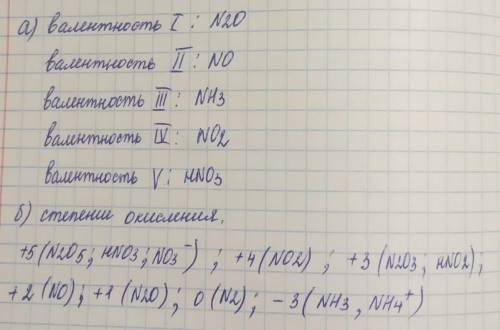 а) валентность I : N2O
валентность II : NO
валентность III : NH3
валентность IV : NO2
валентность V : HNO3
б) степении окисления.
+5 (N2O5 ; HNO3 ; NO3⁻) ; +4 (NO2) ; +3 (N2O3 ; HNO2) ;
+2 (NO) ; +1 (N2O) ; 0 (N2) ; -3 (NH3 , NH4⁺)